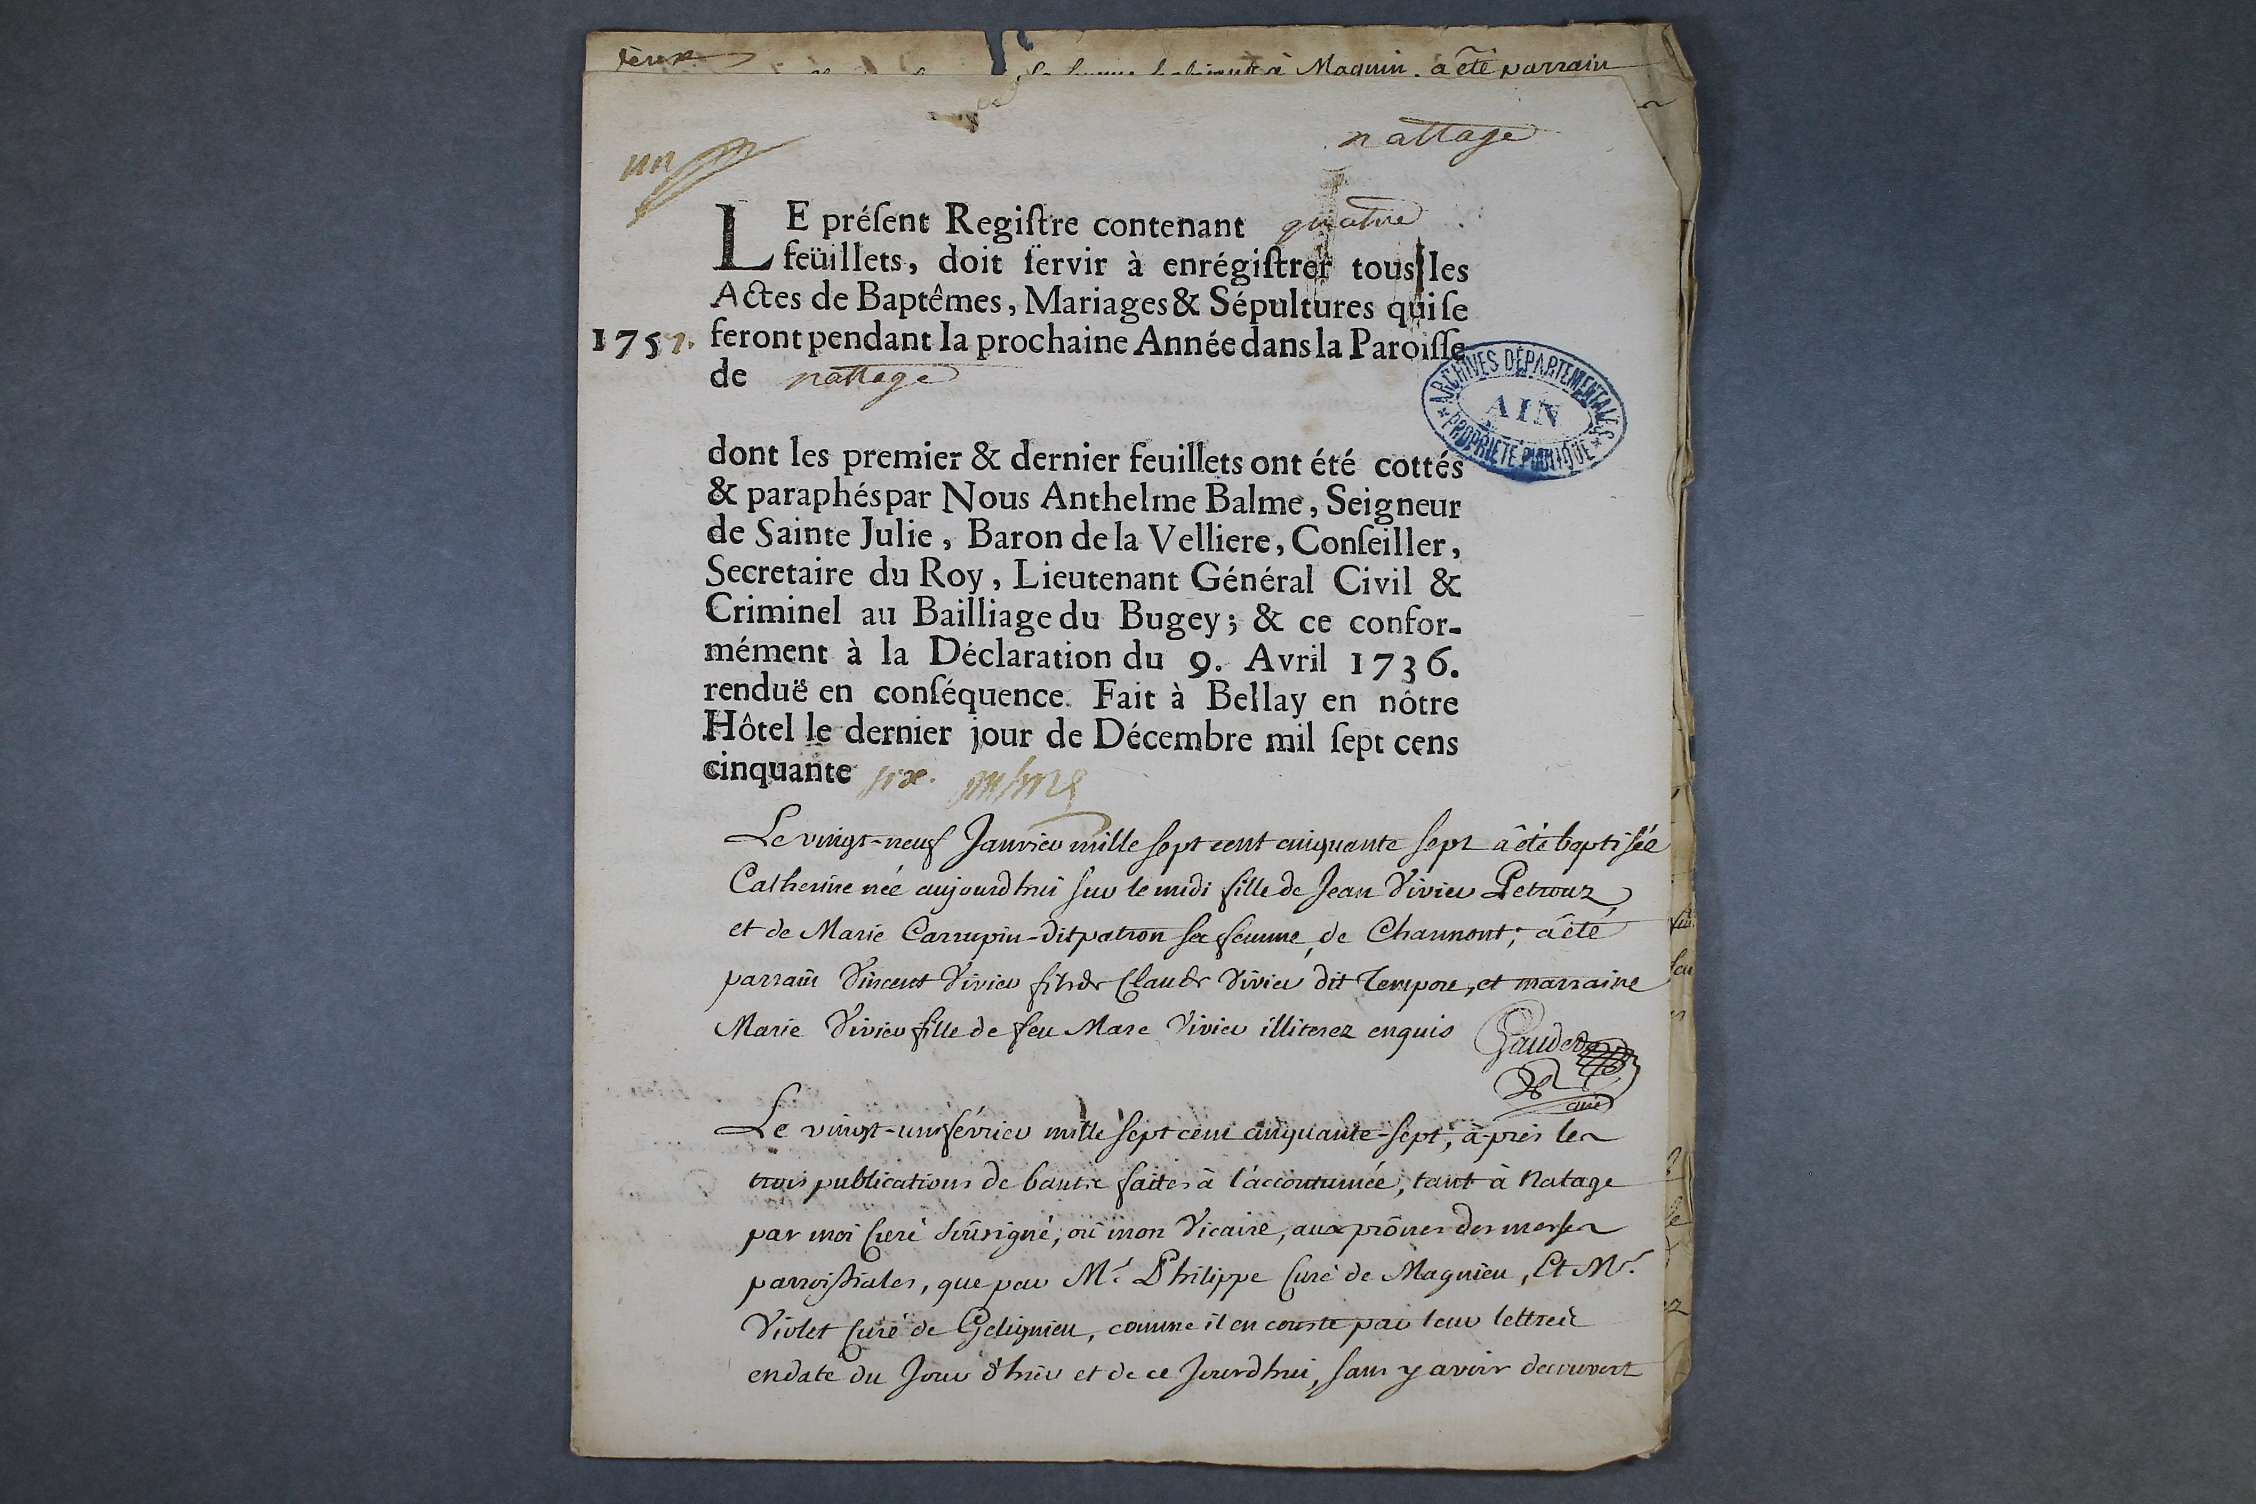 a été parrain
nattage
un
LE préſent Regiſtre contenant quatre
feüillets, doit ſervir à enrégiſtrer tous les
Actes de Baptêmes, Mariages & Sépultures qui ſe
1757. feront pendant la prochaine Année dans la Paroiſſe
de nattage
ARCHIVES DÉPARTEMENTALES
AIN
PROPRIÉTÉ PUBLIQUE
dont les premier & dernier feuillets ont été cottés
& paraphés par Nous Anthelme Balme, Seigneur
de Sainte Julie, Baron de la Velliere, Conſeiller,
Secretaire du Roy, Lieutenant Général Civil &
Criminel au Bailliage du Bugey; & ce confor-
mément à la Déclaration du 9. Avril 1736.
renduë en conſéquence. Fait à Bellay en nôtre
Hôtel le dernier jour de Décembre mil ſept cens
cinquante six.
Le vingt-neuf Janvier mille sept cent cinquante sept a été baptisée
Catherine née aujourdhui sur le midi fille de Jean Vivier Petrouz
et de Marie Carrupin-dit patron sa femme, de Charmont; a été
parrain Vincent Vivier fils de Claude Vivier dit Tempore, et marraine
Marie Vivier fille de feu Marc Vivier illiterez enquis
curé
Le vingt-un février mille sept cent cinquante-sept, après les
trois publications de bans faites à l'accoutumée, tant à Natage
par moi Curé sousigné, ou mon Vicaire, aux prônes des messes
parroissiales, que par Mr. Philippe Curé de Magnieu, Et Mr.
Violet Curé de Gelignieu, comme il en conste par leur lettres
en date du Jour d'hier et de ce Jourdhui, sans y avoir decouvert